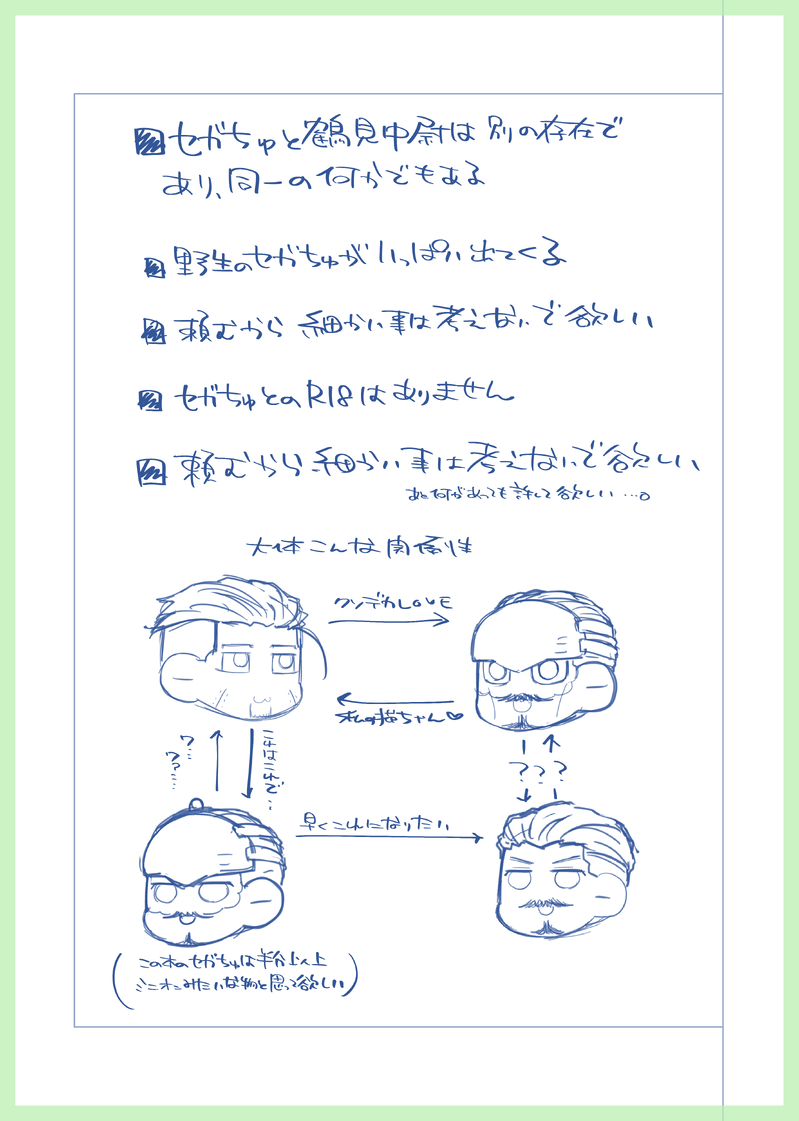 セガちゅと鶴見中尉は別の存在で
あり、同一の何かでもある
野生のセガちゅがいっぱい出てくる
頼むから細かい事は考えないで欲しい
セガちゅとのR18はありません
頼むから細かい事は考えないで欲しい
あと何があっても許して欲しい…。
大体こんな関係性
クソデカLOVE
私の猫ちゃん♡
ワ…
ワァ……
これはこれで…
???
早くこれになりたい
(この本のセガちゅは半分以上
ミニオンみたいな物と思って欲しい)